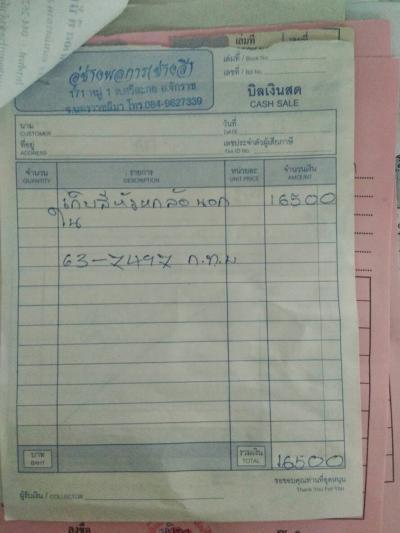 เล่มที่
เลขที่
อู่ช่างพลการ(ช่างสี)
171 หมู่ 1 อ.จักราช
จ.นครราชสีมา โทร.084-9627339
เล่มที่ / Book No.
เลขที่ / Bill No.
บิลเงินสด
CASH SALE
นาม
CUSTOMER
วันที่
DATE
ที่อยู่
ADDRESS
เลขประจำตัวผู้เสียภาษี
TAX ID No.
จำนวน
QUANTITY
รายการ
DESCRIPTION
หน่วยละ
UNIT PRICE
จำนวนเงิน
AMOUNT
เก็บสีหัวเก๋ง นอก 16500
ใน
63-7497 ก.ท.ม
บาท
BAHT
รวมเงิน
TOTAL
16500
ผู้รับเงิน / COLLECTOR
ขอขอบคุณท่านที่อุดหนุน
Thank You For You
ลงชื่อ